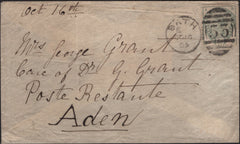 Oct 16th
BATH
53
Mrs George Grant
Care of Dr G. Grant
Poste Restante
Aden